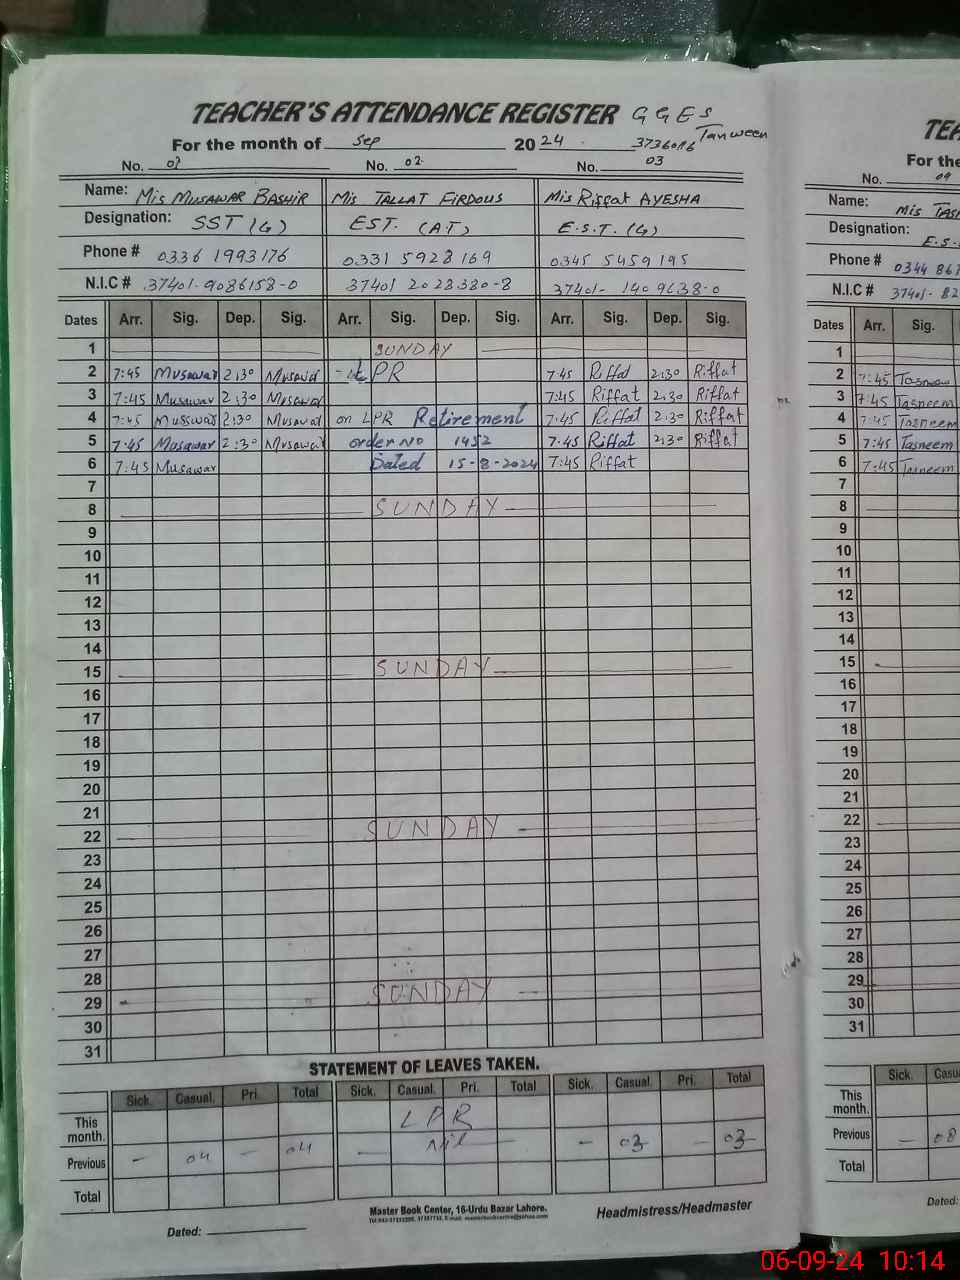 TEACHER'S ATTENDANCE REGISTER GGES
For the month of Sep 2024 3736016 Tanween
No. 01 No. 02 No. 03
Name: Mis MUSAWAR BASHIR Mis TALLAT FIRDOUS Mis Riffat AYESHA
Designation: SST (G) EST. (AT) E.S.T. (G)
Phone # 0336 1993176 0331 5928169 0345 5459195
N.I.C # 37401-9086158-0 37401 2028380-8 37401- 1409638-0
Dates Arr. Sig. Dep. Sig. Arr. Sig. Dep. Sig. Arr. Sig. Dep. Sig.
1 SUNDAY
2 7:45 Musawar 2:30 Musawar LPR 7:45 Riffat 2:30 Riffat
3 7:45 Musawar 2:30 Musawar 7:45 Riffat 2:30 Riffat
4 7:45 Musawar 2:30 Musawar on LPR Retirement 7:45 Riffat 2:30 Riffat
5 7:45 Musawar 2:30 Musawar order No 1452 7:45 Riffat 2:30 Riffat
6 7:45 Musawar Dated 15-8-2024 7:45 Riffat
7
8 SUNDAY
9
10
11
12
13
14
15 SUNDAY
16
17
18
19
20
21
22 SUNDAY
23
24
25
26
27
28
29 SUNDAY
30
31
STATEMENT OF LEAVES TAKEN.
Sick. Casual. Pri. Total Sick. Casual. Pri. Total Sick. Casual. Pri. Total
This month. LPR
Previous - 04 - 04 - Nil - - 03 - 03
Total
Master Book Center, 16-Urdu Bazar Lahore.
Dated: Headmistress/Headmaster
For the
No. 04
Name: Mis
Designation: E.S.
Phone # 0344
N.I.C # 37401- 82
Dates Arr. Sig.
1
2 7:45 Tasneem
3 7:45 Tasneem
4 7:45 Tasneem
5 7:45 Tasneem
6 7:45 Tasneem
7
8
9
10
11
12
13
14
15
16
17
18
19
20
21
22
23
24
25
26
27
28
29
30
31
Sick.
This month.
Previous - 08
Total
Dated:
06-09-24 10:14